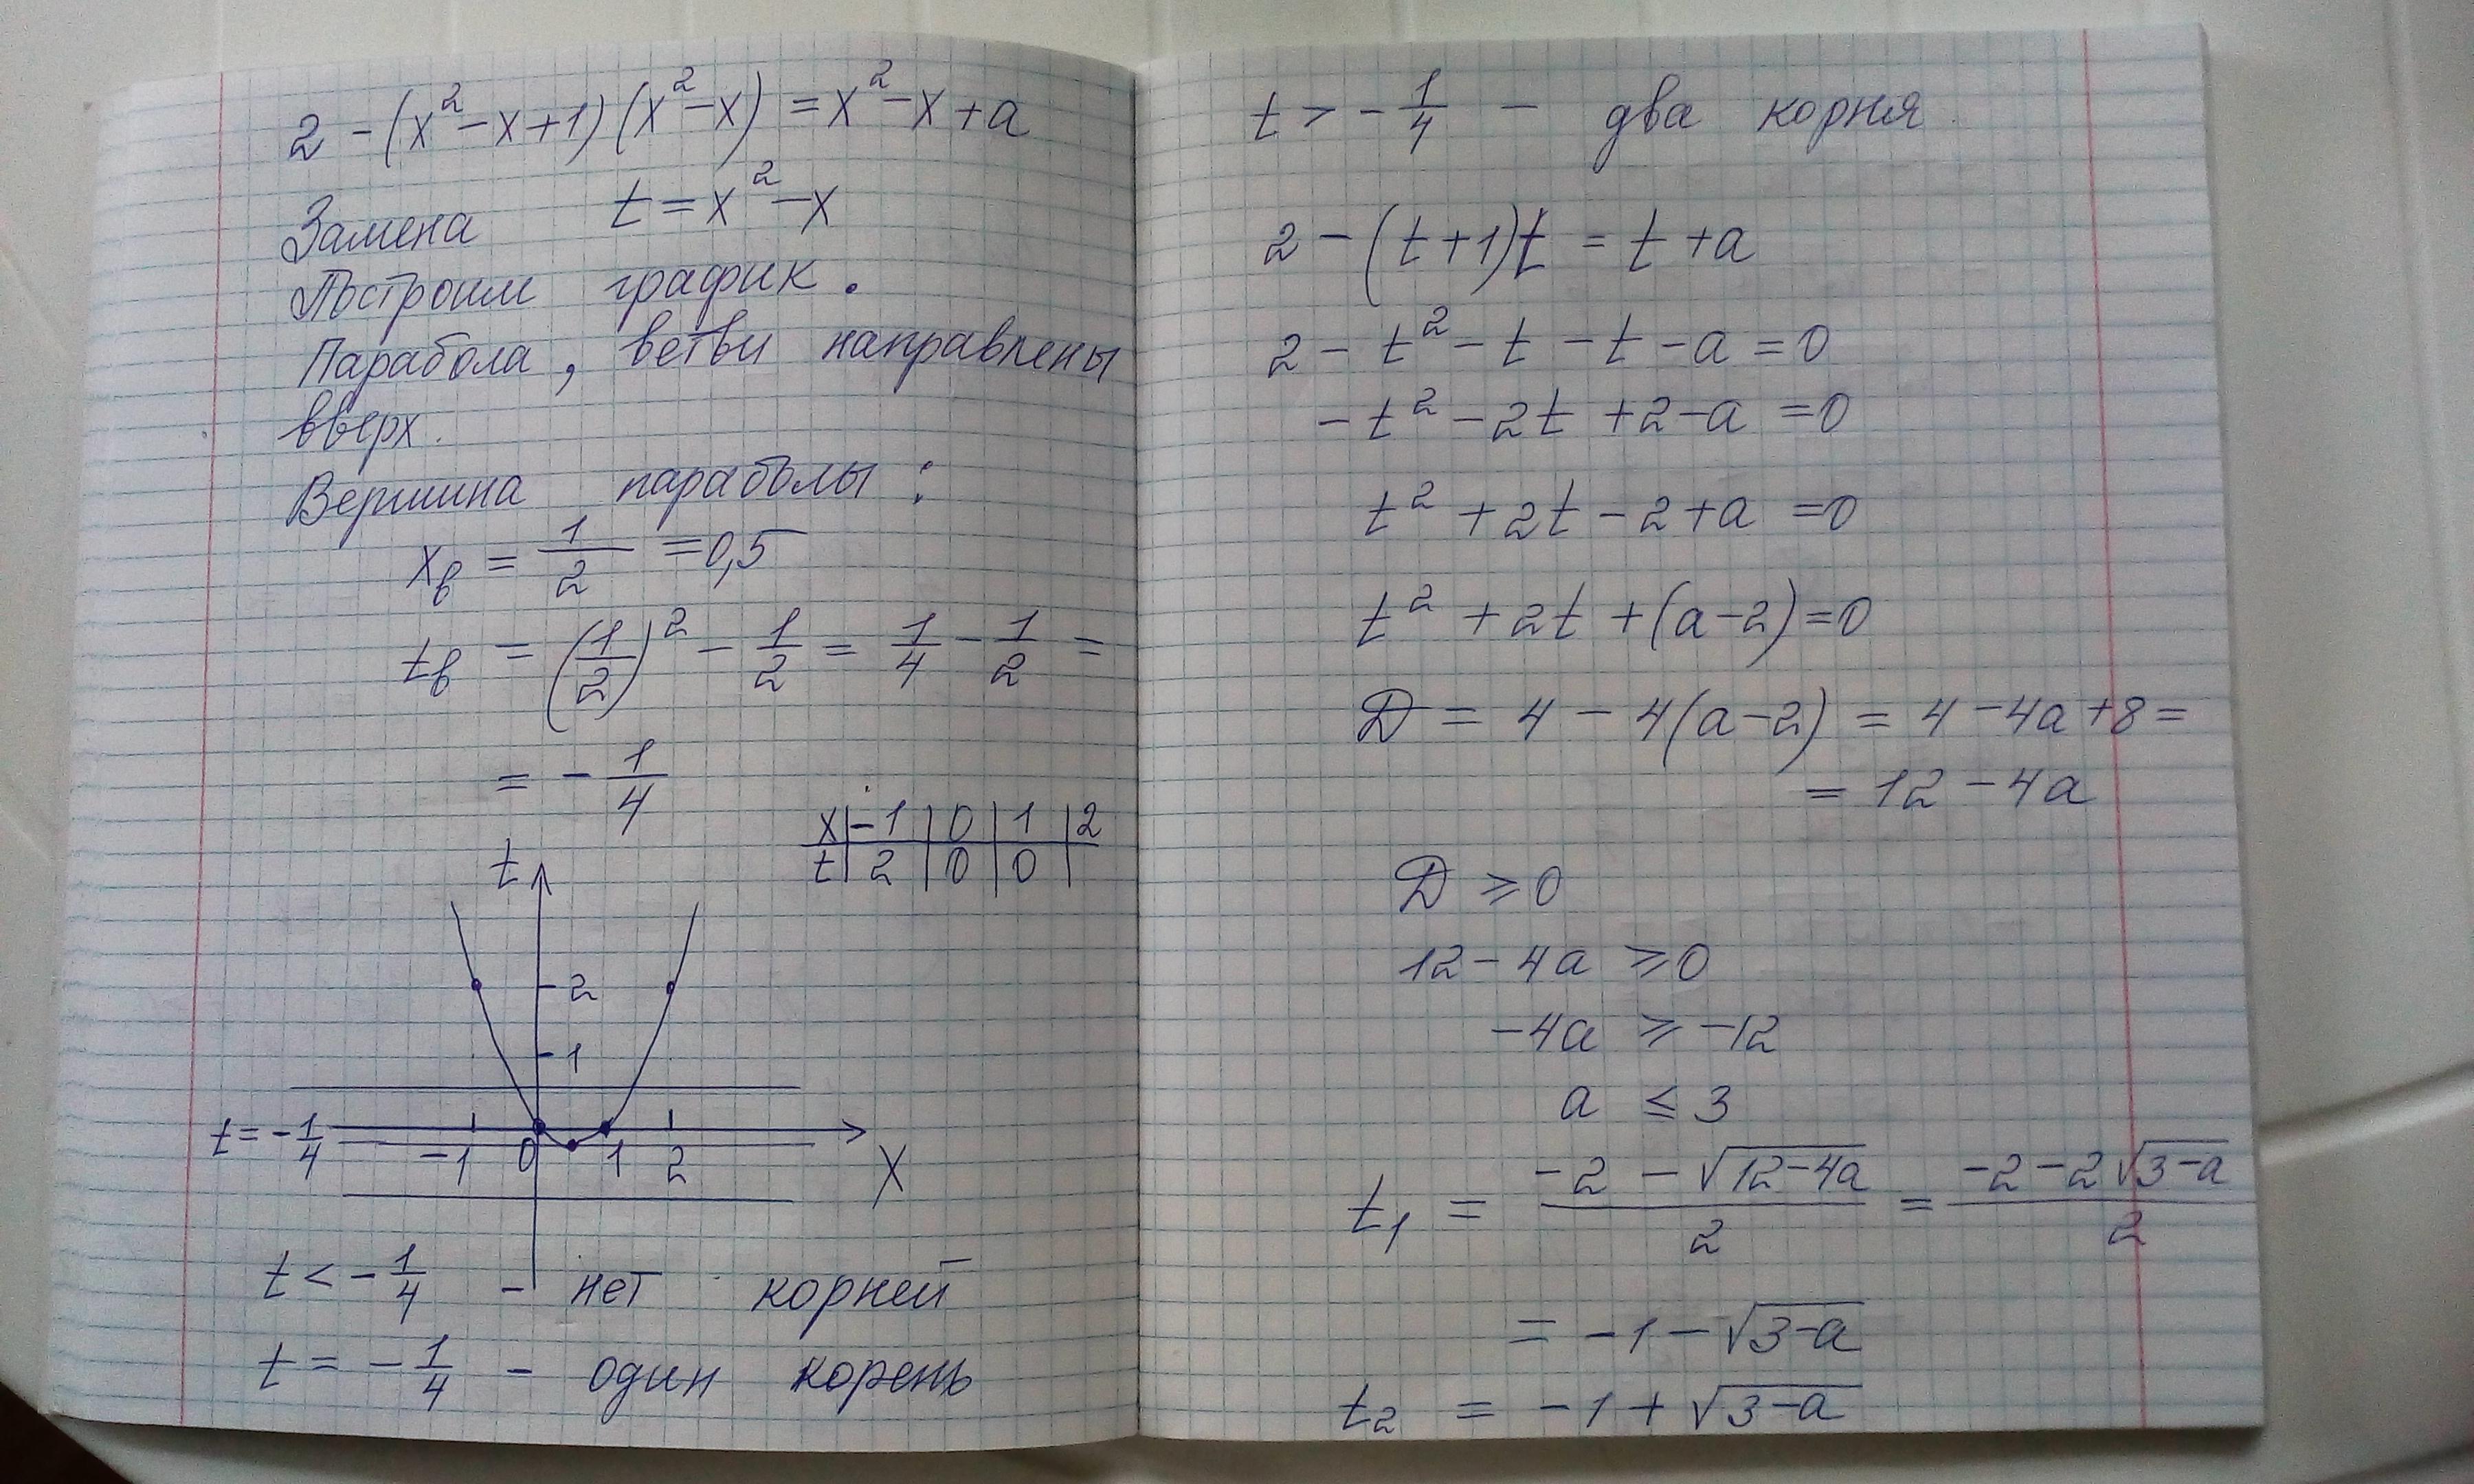 2 - (x² - x + 1)(x² - x) = x² - x + a
Замена t = x² - x
Построим график.
Парабола, ветви направлены
вверх.
Вершина параболы:
xв = 1/2 = 0,5
tв = (1/2)² - 1/2 = 1/4 - 1/2 =
= - 1/4
x | -1 | 0 | 1 | 2
t | 2 | 0 | 0 |
t
2
1
t = - 1/4 -1 0 1 2 X
t < - 1/4 - нет корней
t = - 1/4 - один корень
t > - 1/4 - два корня
2 - (t + 1)t = t + a
2 - t² - t - t - a = 0
- t² - 2t + 2 - a = 0
t² + 2t - 2 + a = 0
t² + 2t + (a - 2) = 0
D = 4 - 4(a - 2) = 4 - 4a + 8 =
= 12 - 4a
D ⩾ 0
12 - 4a ⩾ 0
-4a ⩾ -12
a ⩽ 3
t₁ = (-2 - √(12 - 4a))/2 = (-2 - 2√(3 - a))/2
= -1 - √(3 - a)
t₂ = -1 + √(3 - a)